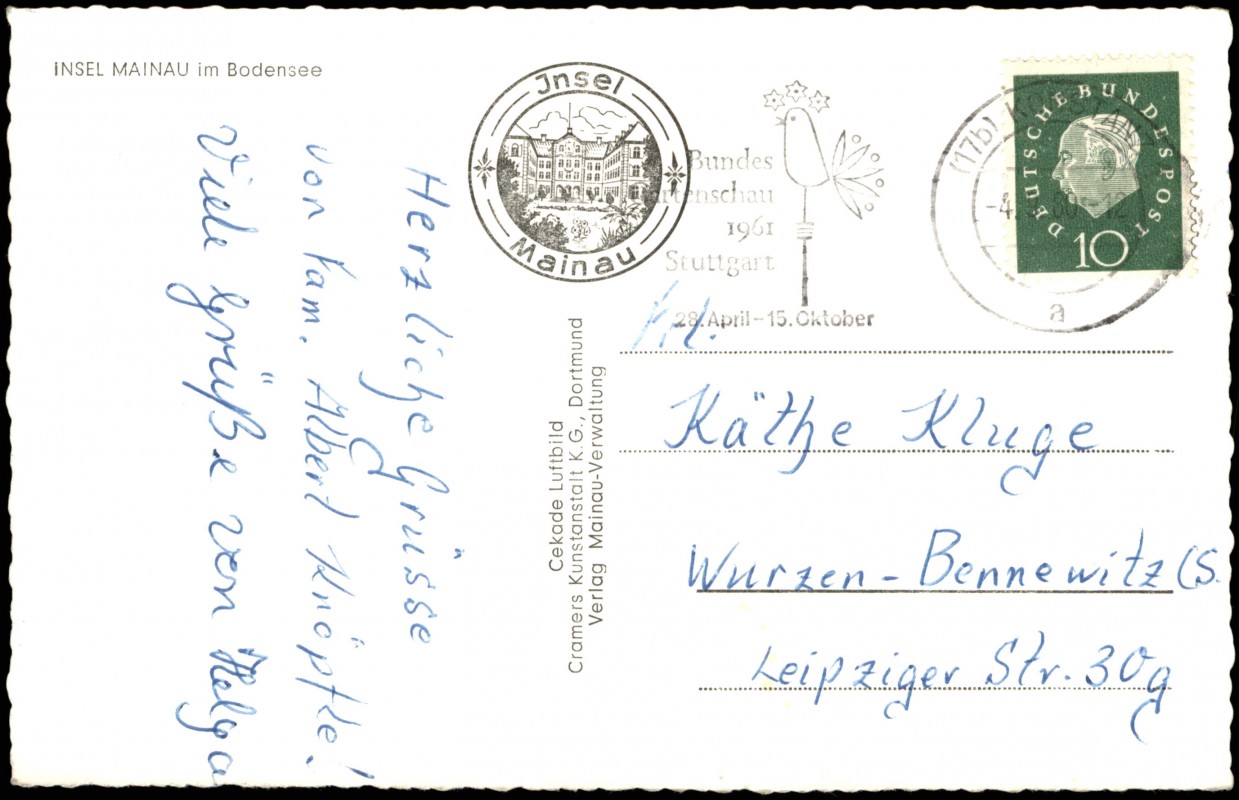 INSEL MAINAU im Bodensee
Insel
Mainau
Bundes
gartenschau
1961
Stuttgart
28. April-15. Oktober
(17b) KONSTANZ
a
DEUTSCHE BUNDESPOST
10
Herzliche Grüsse
von Kam. Albert Knöpfle!
Viele Grüße von Helga
Cekade Luftbild
Cramers Kunstanstalt K.G., Dortmund
Verlag Mainau-Verwaltung
Frl.
Käthe Kluge
Wurzen - Bennewitz (S.
Leipziger Str. 30g